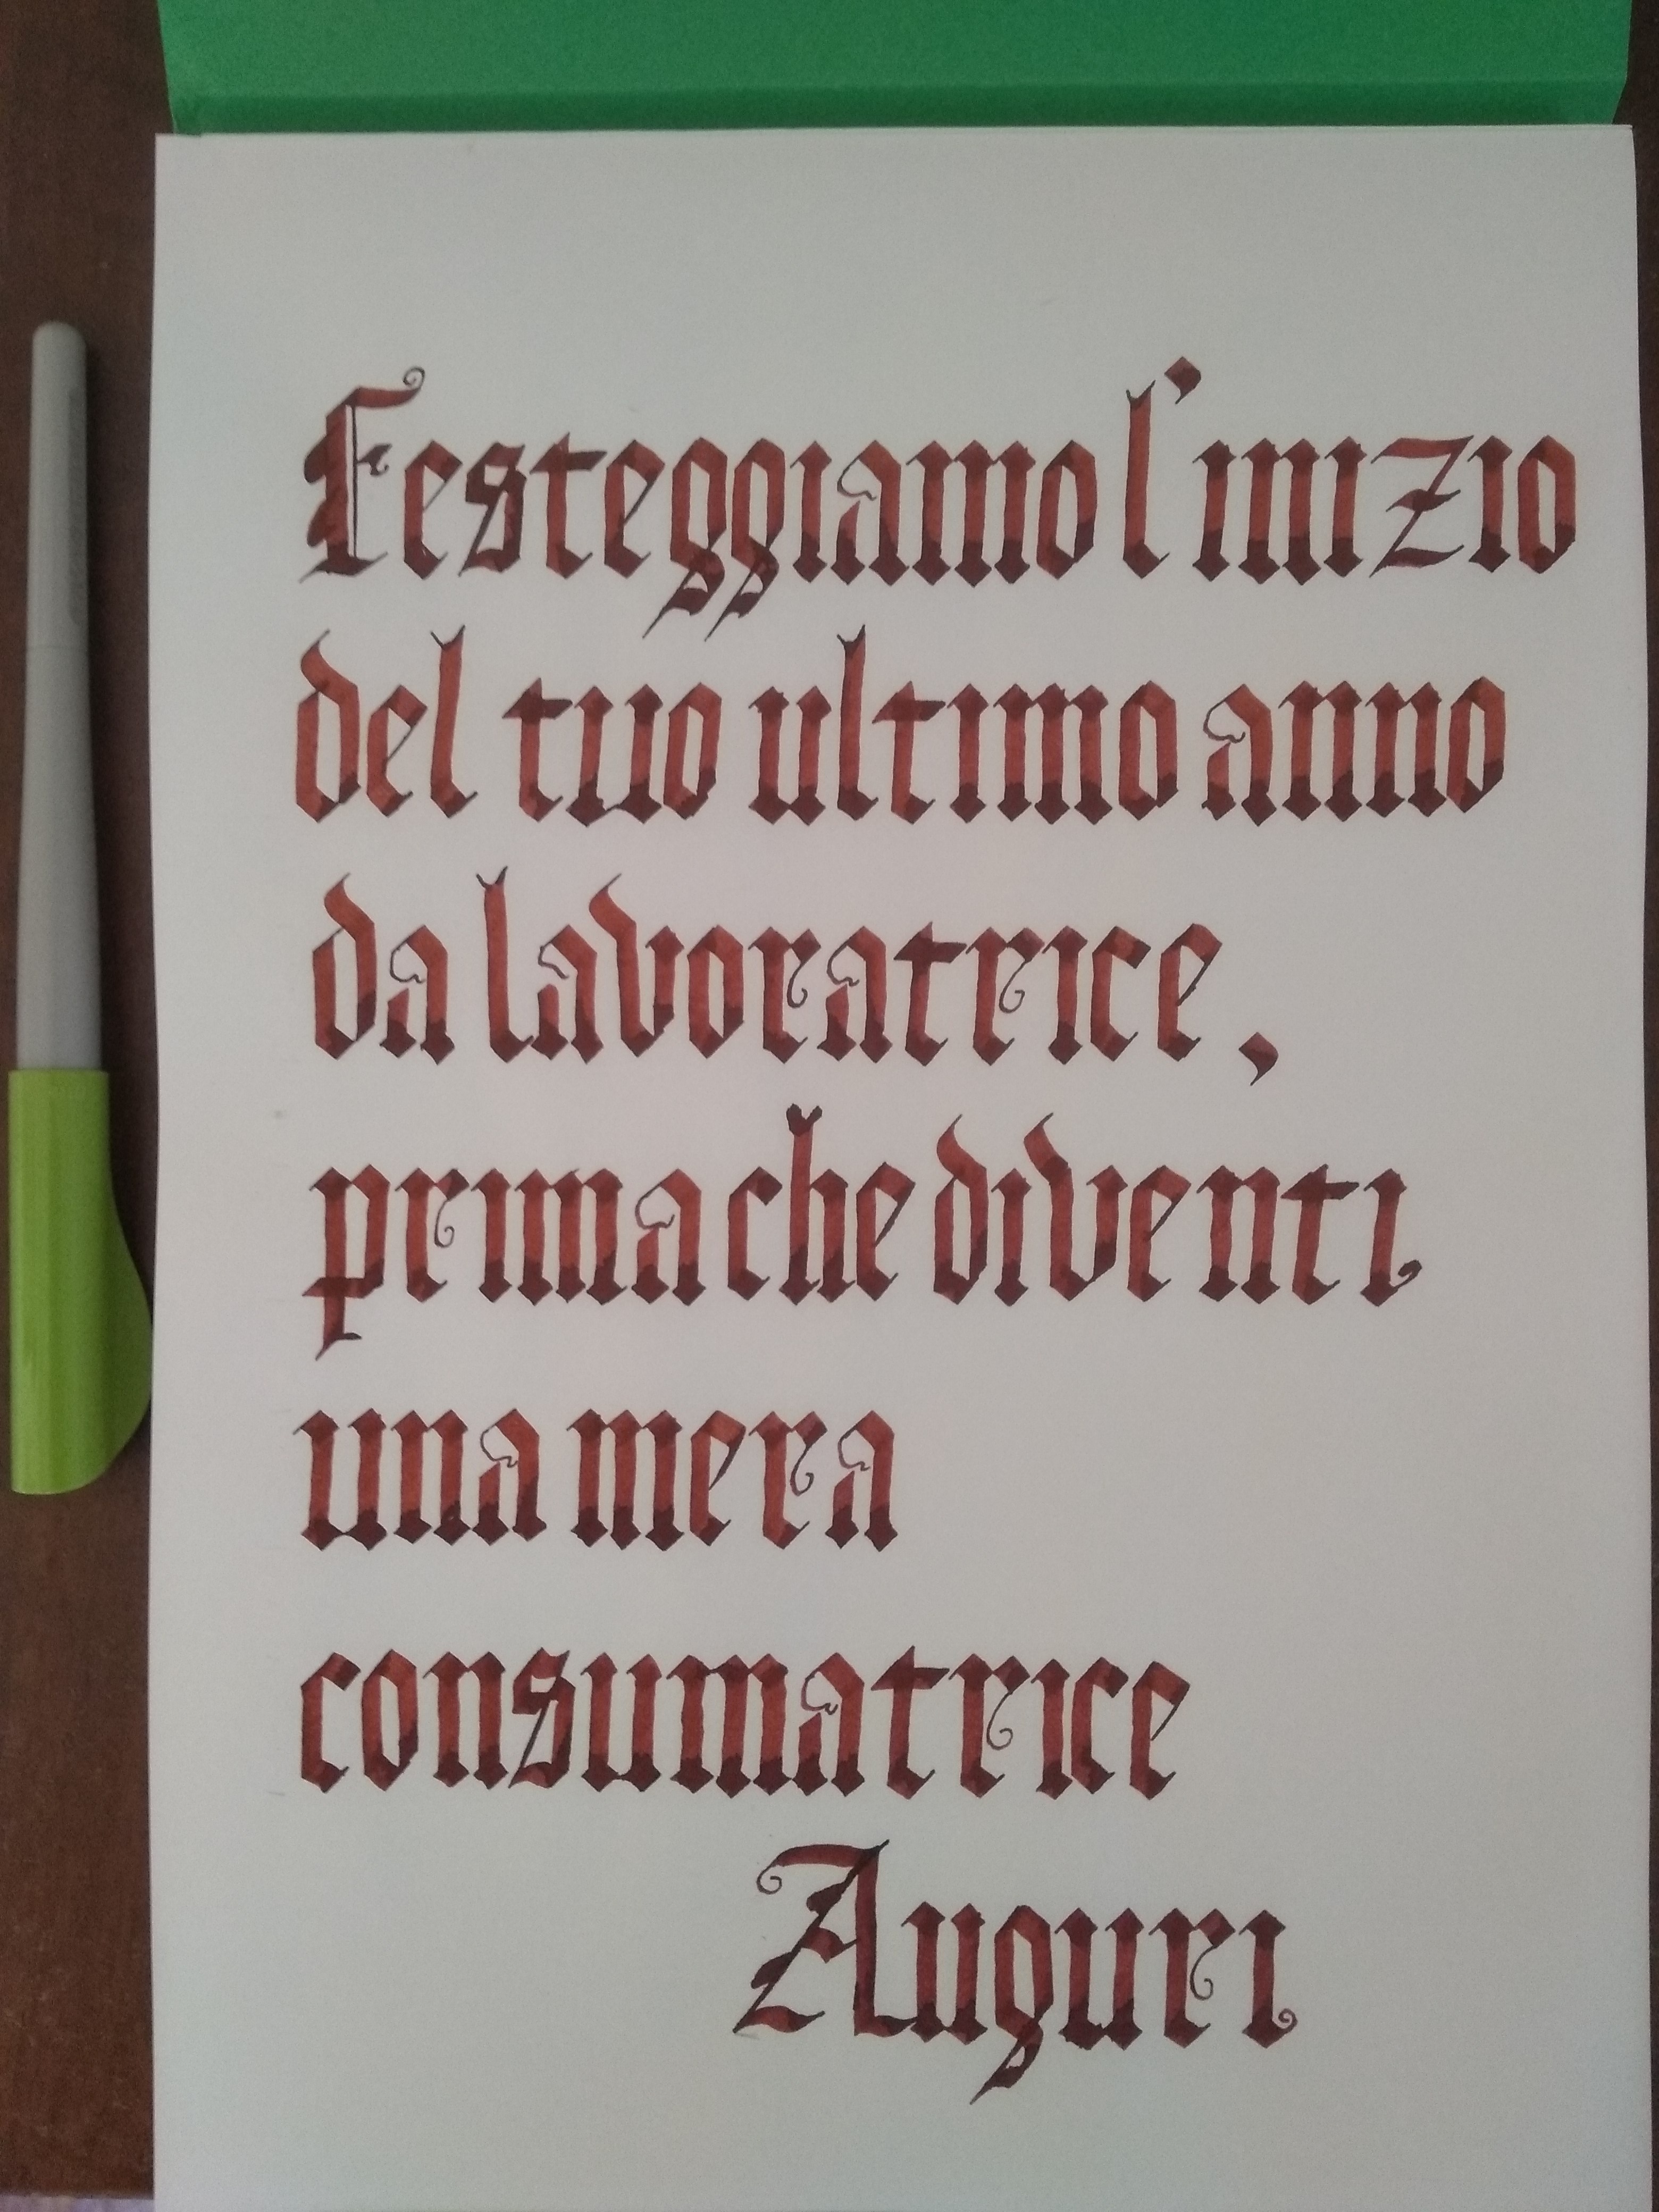 Festeggiamo l'inizio
del tuo ultimo anno
da lavoratrice,
prima che diventi
una mera
consumatrice
Auguri